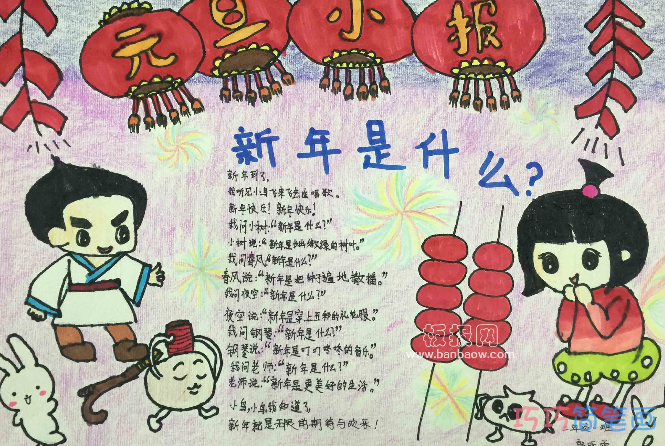 元旦小报
新年是什么?
新年到了,
我听见小鸟飞来飞去在唱歌。
新年快乐!新年快乐!
我问小树:“新年是什么?”
小树说:“新年是嫩绿的树叶。”
我问春风:“新年是什么?”
春风说:“新年是把种子遍地散播。”
我问夜空:“新年是什么?”
夜空说:“新年是穿上五彩的礼花服。”
我问钢琴:“新年是什么?”
钢琴说:“新年是叮叮咚咚的音乐。”
我问老师:“新年是什么?”
老师说:“新年是更美好的生活。”
小鸟,小鸟我知道了,
新年就是无限的期待与欢乐!
板报网
www.banbaow.com
巧巧简笔画